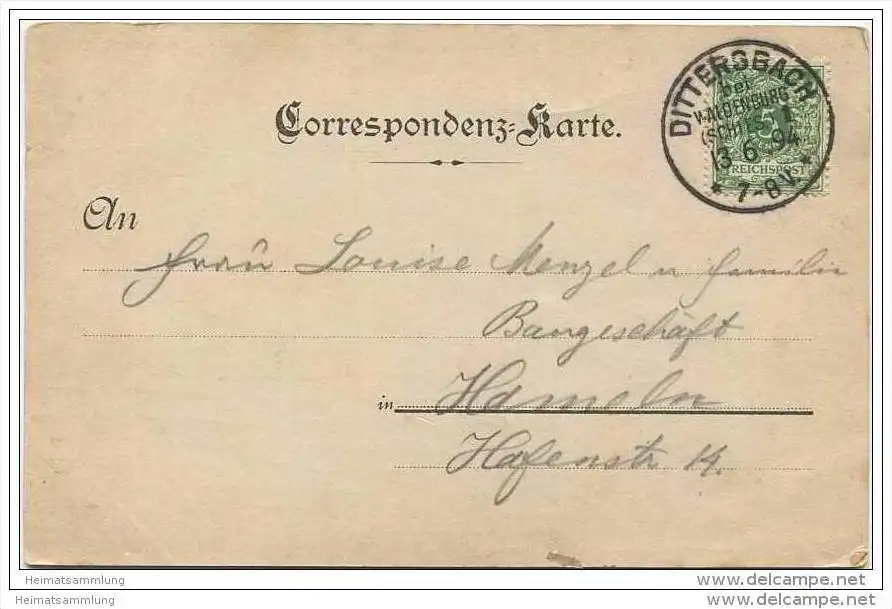 Correspondenz-Karte.
DITTERSBACH
bei
WALDENBURG
(SCHL.)
13 6 94
* 7-8V. *
5
REICHSPOST
An
Frau Louise Menzel u Familie
Baugeschäft
in Hameln
Hafenstr 14.
Heimatsammlung
Heimatsammlung
www.delcampe.net
www.delcampe.net